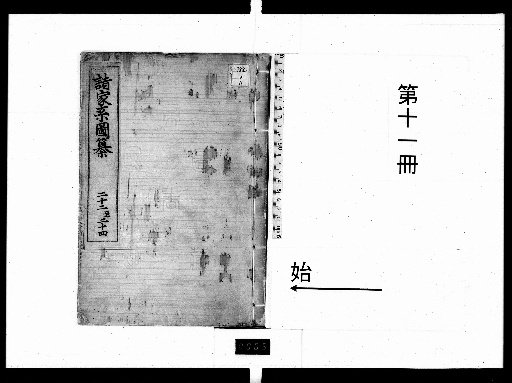 第十一冊
始
諸家系圖纂
二十二至二十四